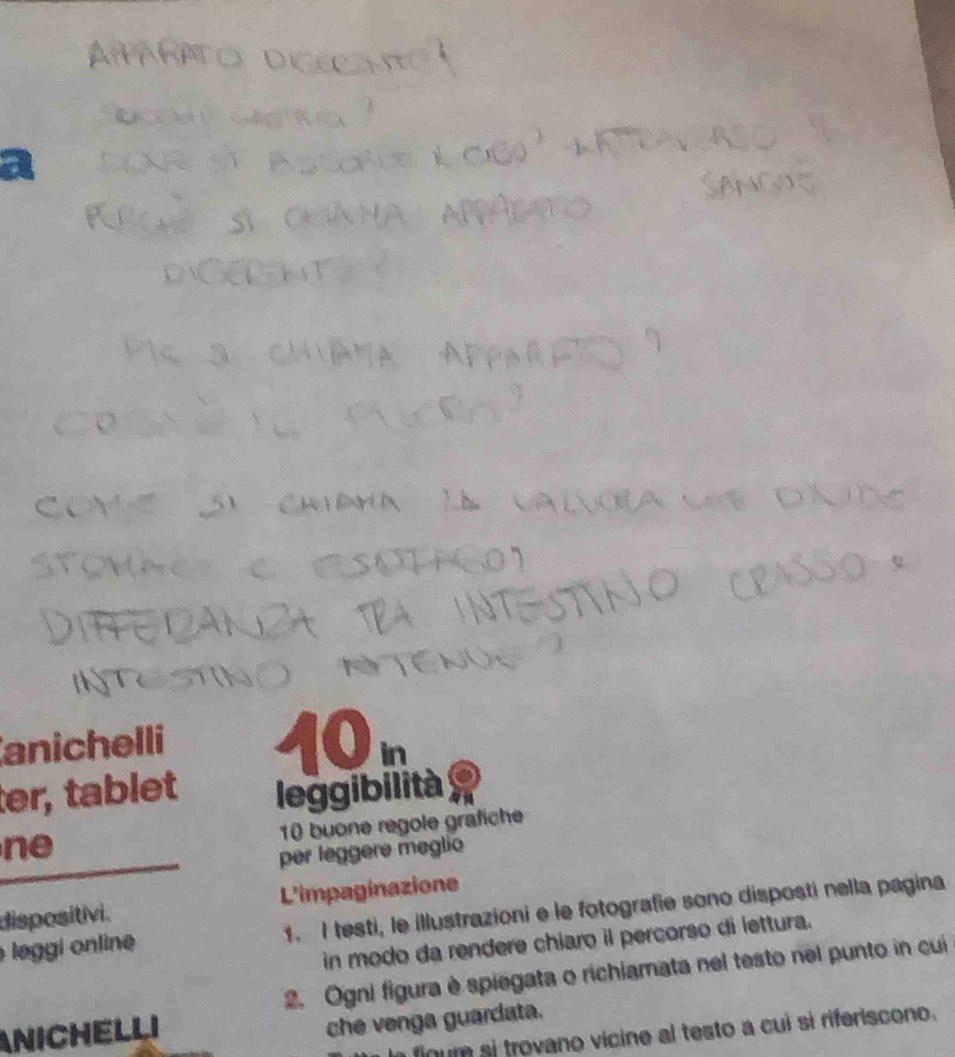 APPARATO DIGERENTE?
SUCCHI GASTRICI?
a
DOVE SI ASSORBE IL CIBO? ATTRAVERSO IL
SANGUE
PERCHÈ SI CHIAMA APPARATO
DIGERENTE?
SI CHIAMA APPARATO?
COS'È IL
COME SI CHIAMA LA VALVOLA CHE DIVIDE
STOMACO E ESOFAGO?
DIFFERANZA TRA INTESTINO CRASSO e
INTESTINO TENUE?
anichelli
ter, tablet
ne
10 in
leggibilità
10 buone regole grafiche
per leggere meglio
dispositivi.
e leggi online
ANICHELLI
L'impaginazione
1. I testi, le illustrazioni e le fotografie sono disposti nella pagina
in modo da rendere chiaro il percorso di lettura.
2. Ogni figura è spiegata o richiamata nel testo nel punto in cui
che venga guardata.
le figure si trovano vicine al testo a cui si riferiscono.